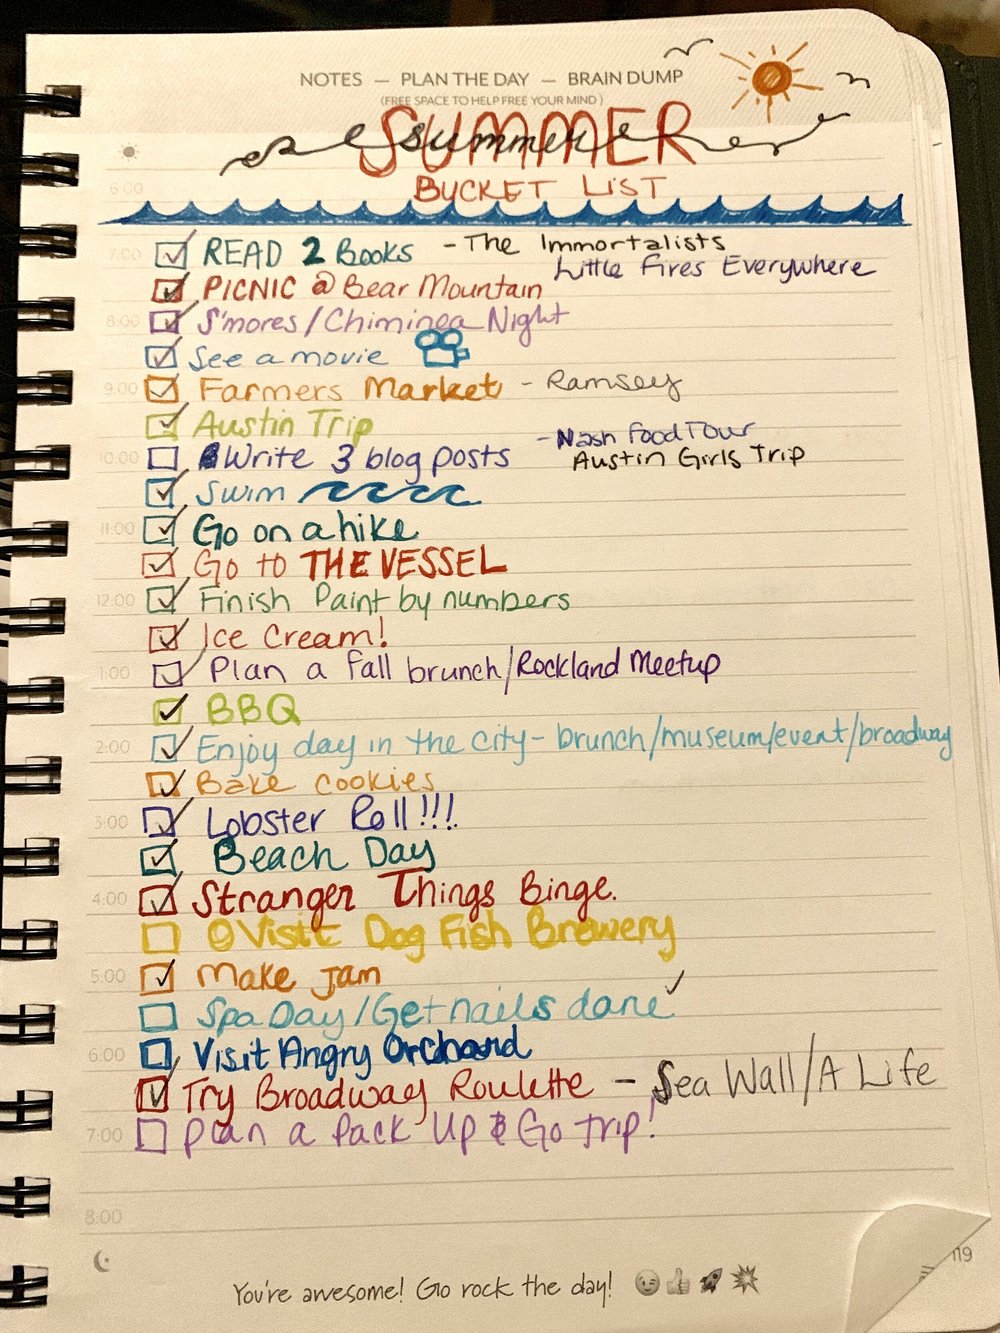 NOTES — PLAN THE DAY — BRAIN DUMP
(FREE SPACE TO HELP FREE YOUR MIND)
SUMMER
summer
BUCKET LIST
6:00
7:00 READ 2 Books - The Immortalists
Little Fires Everywhere
PICNIC @ Bear Mountain
8:00 S'mores/Chiminea Night
See a movie
9:00 Farmers Market - Ramsey
Austin Trip
10:00 Write 3 blog posts - Nash Food Tour
Austin Girls Trip
Swim
11:00 Go on a hike
Go to THE VESSEL
12:00 Finish Paint by numbers
Ice Cream!
1:00 Plan a fall brunch/Rockland Meetup
BBQ
2:00 Enjoy day in the city - brunch/museum/event/broadway
Bake cookies
3:00 Lobster Roll!!!
Beach Day
4:00 Stranger Things Binge.
Visit Dog Fish Brewery
5:00 Make Jam
Spa Day/Get nails done
6:00 Visit Angry Orchard
Try Broadway Roulette - Sea Wall/A Life
7:00 Plan a Pack Up & Go trip!
8:00
119
You're awesome! Go rock the day!